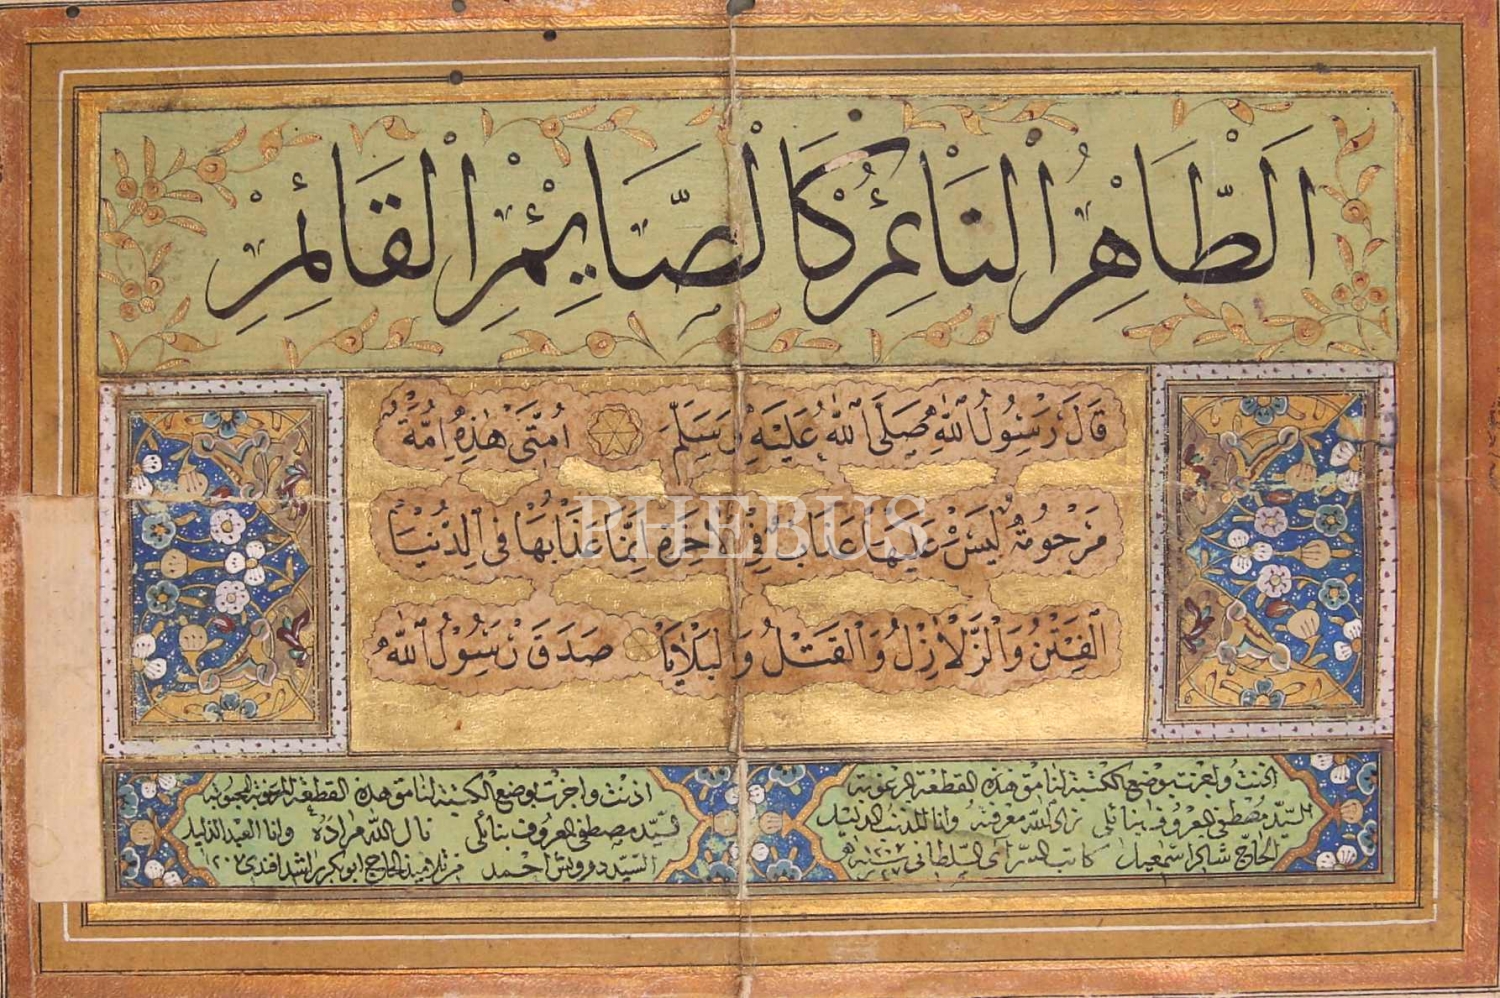 اَلطَّاهِرُ النَّائِمُ كَالصَّائِمِ الْقَائِمِ
قَالَ رَسُولُ اللّٰهِ صَلَّى اللّٰهُ عَلَيْهِ وَسَلَّمَ اُمَّتٖى هٰذِهٖ اُمَّةٌ
مَرْحُومَةٌ لَيْسَ عَلَيْهَا عَذَابٌ فِى الْاٰخِرَةِ اِنَّمَا عَذَابُهَا فِى الدُّنْيَا
الْفِتَنُ وَالزَّلَازِلُ وَالْقَتْلُ وَالْبَلَايَا صَدَقَ رَسُولُ اللّٰهِ
PHEBUS
اذنت واجزت بوضع الكتبة لنامق هذه القطعة المرغوبة
السيد مصطفى المعروف بنائلى نال الله معرفته وانا المذنب الذليل
الحاج شاكر اسمعيل كاتب السراى السلطانى سنه ١٢٠٧
اذنت واجزت بوضع الكتبة لنامق هذه القطعة المرغوبة المحبوبة
السيد مصطفى المعروف بنائلى نال الله مراده وانا العبد الذليل
السيد درويش احمد من تلاميذ الحاج ابوبكر راشد افندى ١٢٠٧